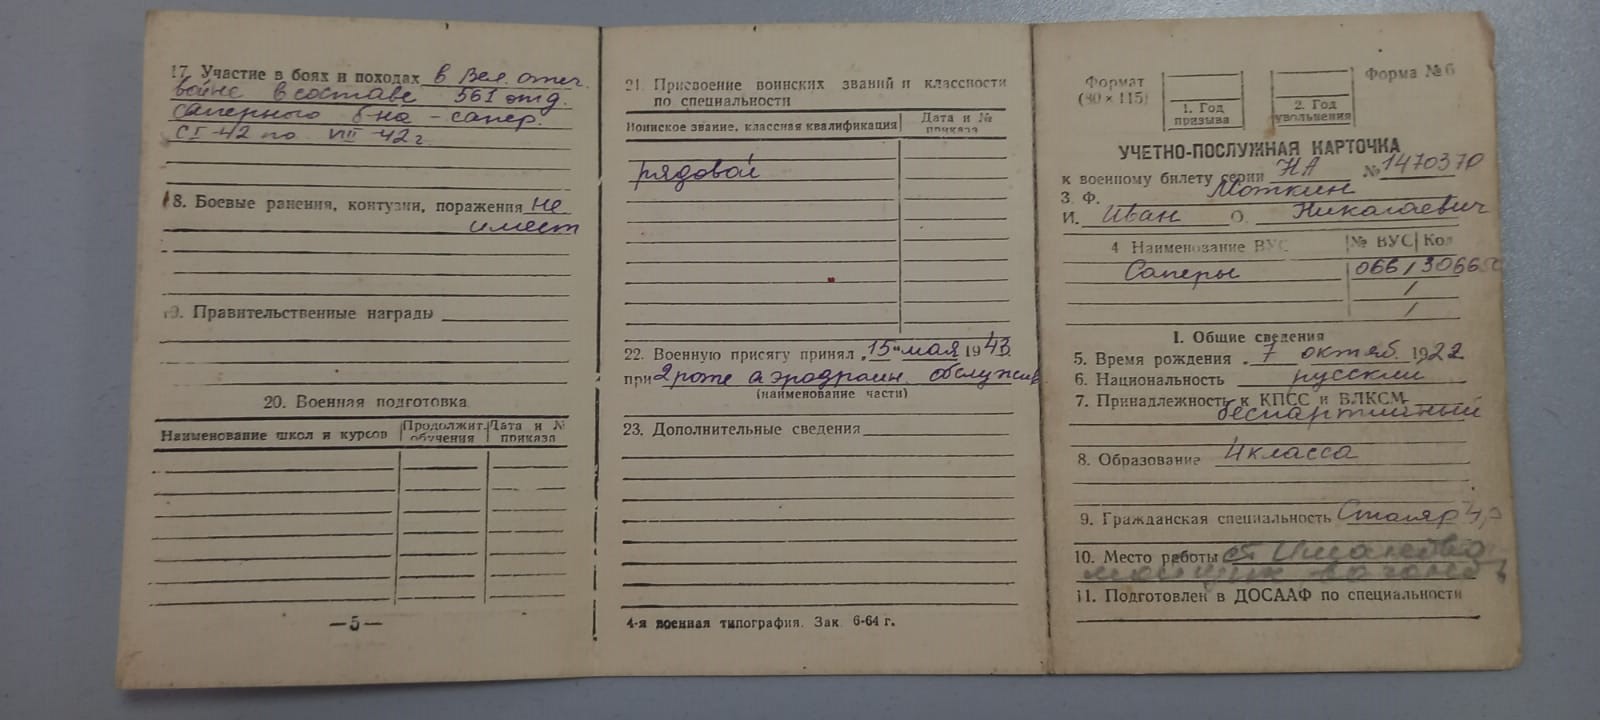 17. Участие в боях и походах в Вел. отеч.
войне в составе 561 отд.
саперного б-на - сапер.
с I-42 по VIII-42 г.
18. Боевые ранения, контузии, поражения не
имеет
19. Правительственные награды
20. Военная подготовка
Наименование школ и курсов Продолжит. обучения Дата и № приказа
—5—
21. Присвоение воинских званий и классности
по специальности
Воинское звание, классная квалификация Дата и № приказа
рядовой
22. Военную присягу принял „15“ мая 1943.
при 2 роте аэродромн. обслужив
(наименование части)
23. Дополнительные сведения
4-я военная типография. Зак. 6-64 г.
Формат
(80×115)
1. Год
призыва
2. Год
увольнения
Форма № 6
УЧЕТНО-ПОСЛУЖНАЯ КАРТОЧКА
к военному билету серии НА № 1470370
3. Ф. Моткин
И. Иван О. Николаевич
4 Наименование ВУС № ВУС Код
Саперы 066 / 306650
/
/
I. Общие сведения
5. Время рождения 7 октяб. 1922
6. Национальность русский
7. Принадлежность к КПСС и ВЛКСМ
беспартийный
8. Образование 4 класса
9. Гражданская специальность Столяр 4,
10. Место работы ст.
11. Подготовлен в ДОСААФ по специальности